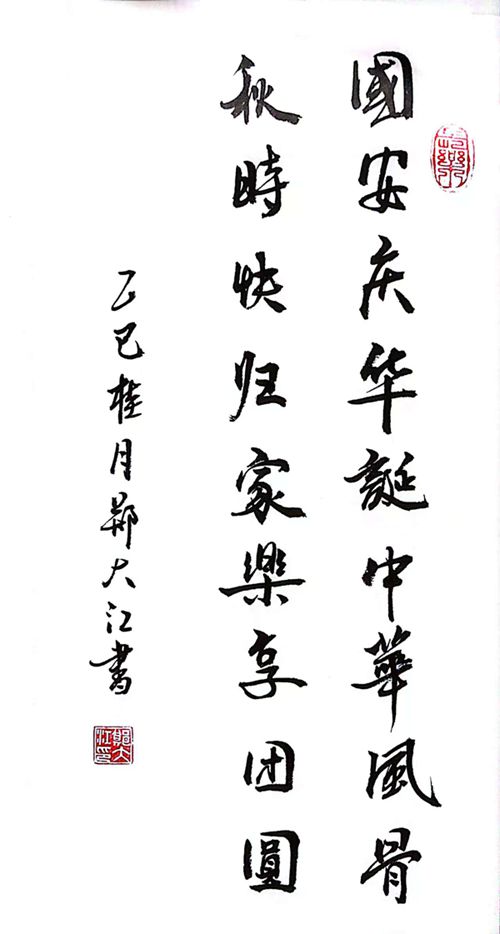 國安庆华誕中華風骨
秋時快归家樂享团圓
乙巳桂月鄭大江書